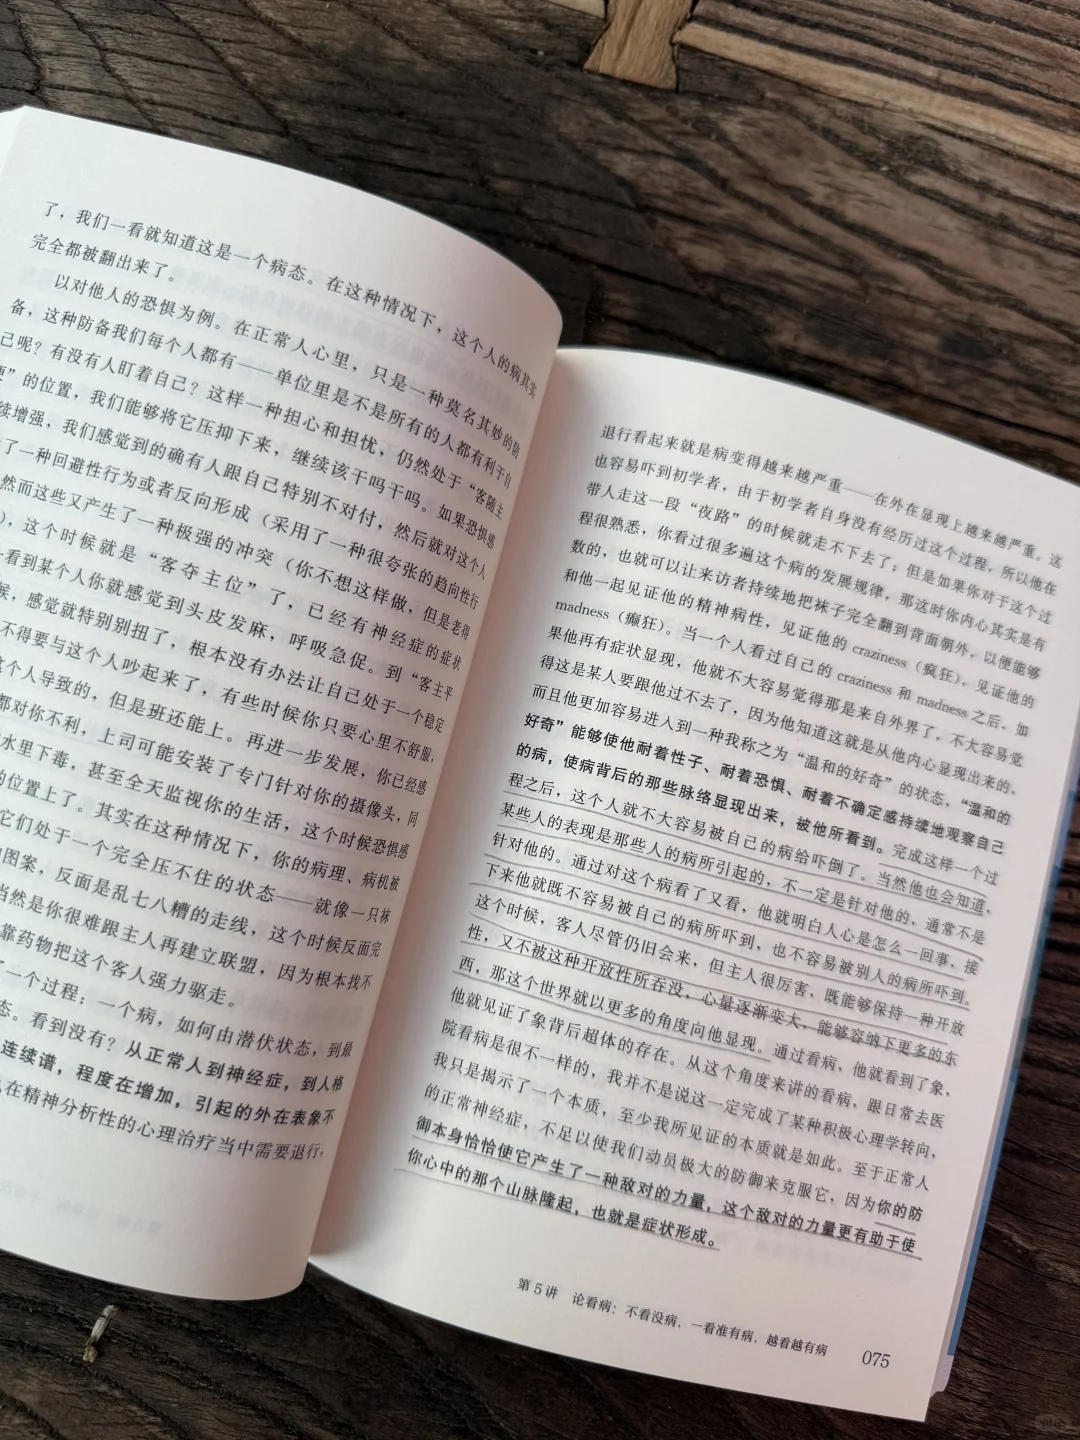 了，我们一看就知道这是一个病态。在这种情况下，这个人的病其实
完全都被翻出来了。
以对他人的恐惧为例。在正常人心里，只是一种莫名其妙的防
备，这种防备我们每个人都有——单位里是不是所有的人都有利于自
己呢？有没有人盯着自己？这样一种担心和担忧，仍然处于“客随主
便”的位置，我们能够将它压抑下来，继续该干吗干吗。如果恐惧感
续增强，我们感觉到的确有人跟自己特别不对付，然后就对这个人
了一种回避性行为或者反向形成（采用了一种很夸张的趋向性行
然而这些又产生了一种极强的冲突（你不想这样做，但是老得
），这个时候就是“客夺主位”了，已经有神经症的症状
一看到某个人你就感觉到头皮发麻，呼吸急促。到“客主平
候，感觉就特别别扭了，根本没有办法让自己处于一个稳定
不得要与这个人吵起来了，有些时候你只要心里不舒服，
这个人导致的，但是班还能上。再进一步发展，你已经感
都对你不利，上司可能安装了专门针对你的摄像头，同
水里下毒，甚至全天监视你的生活，这个时候恐惧感
的位置上了。其实在这种情况下，你的病理、病机被
它们处于一个完全压不住的状态——就像一只袜
图案，反面是乱七八糟的走线，这个时候反面完
当然是你很难跟主人再建立联盟，因为根本找不
靠药物把这个客人强力驱走。
了一个过程：一个病，如何由潜伏状态，到最
态。看到没有？从正常人到神经症，到人格
连续谱，程度在增加，引起的外在表象不
在精神分析性的心理治疗当中需要退行，
退行看起来就是病变得越来越严重——在外在显现上越来越严重。这
也容易吓到初学者，由于初学者自身没有经历过这个过程，所以他在
带人走这一段“夜路”的时候就走不下去了；但是如果你对于这个过
程很熟悉，你看过很多遍这个病的发展规律，那这时你内心其实是有
数的，也就可以让来访者持续地把袜子完全翻到背面朝外，以便能够
和他一起见证他的精神病性，见证他的 craziness（疯狂），见证他的
madness（癫狂）。当一个人看过自己的 craziness 和 madness 之后，如
果他再有症状显现，他就不大容易觉得那是来自外界了，不大容易觉
得这是某人要跟他过不去了，因为他知道这就是从他内心显现出来的，
而且他更加容易进入到一种我称之为“温和的好奇”的状态，“温和的
好奇”能够使他耐着性子、耐着恐惧、耐着不确定感持续地观察自己
的病，使病背后的那些脉络显现出来，被他所看到。完成这样一个过
程之后，这个人就不大容易被自己的病给吓倒了。当然他也会知道，
某些人的表现是那些人的病所引起的，不一定是针对他的，通常不是
针对他的。通过对这个病看了又看，他就明白人心是怎么一回事，接
下来他就既不容易被自己的病所吓到，也不容易被别人的病所吓到。
这个时候，客人尽管仍旧会来，但主人很厉害，既能够保持一种开放
性，又不被这种开放性所吞没，心量逐渐变大，能够容纳下更多的东
西，那这个世界就以更多的角度向他显现。通过看病，他就看到了象，
他就见证了象背后超体的存在。从这个角度来讲的看病，跟日常去医
院看病是很不一样的，我并不是说这一定完成了某种积极心理学转向，
我只是揭示了一个本质，至少我所见证的本质就是如此。至于正常人
的正常神经症，不足以使我们动员极大的防御来克服它，因为你的防
御本身恰恰使它产生了一种敌对的力量，这个敌对的力量更有助于使
你心中的那个山脉隆起，也就是症状形成。
第5讲 论看病：不看没病，一看准有病，越看越有病 075